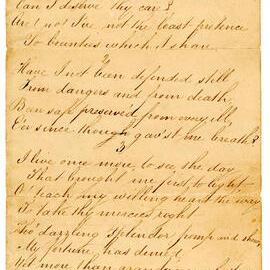 Can I deserve thy care?
And I not I've not the least pretence
To bounties which it share
2
Have I not been defended still
From dangers and from death
Been safe preserv'd from every ill
E'er since though gav'st me breath?
3
I live once more to see the day
That brought me first to light
O teach my willing heart the way
To take thy mercies right
Tho dazzling splendor pomp and show
My fortune has denied
Yet more than grandeur